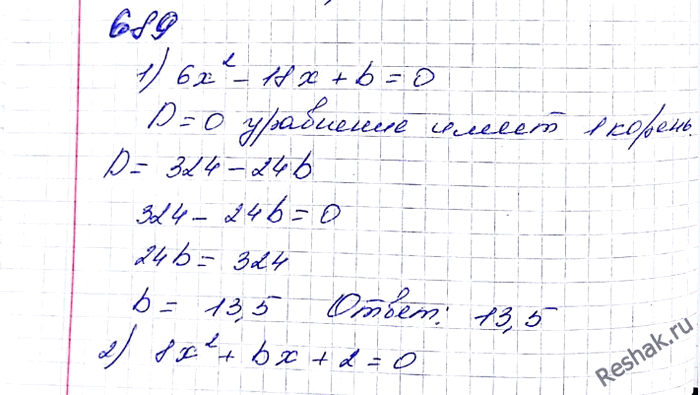 689
1) 6x² - 18x + b = 0
D = 0 уравнение имеет 1 корень.
D = 324 - 24b
324 - 24b = 0
24b = 324
b = 13,5 Ответ: 13,5
2) 8x² + bx + 2 = 0
Reshak.ru